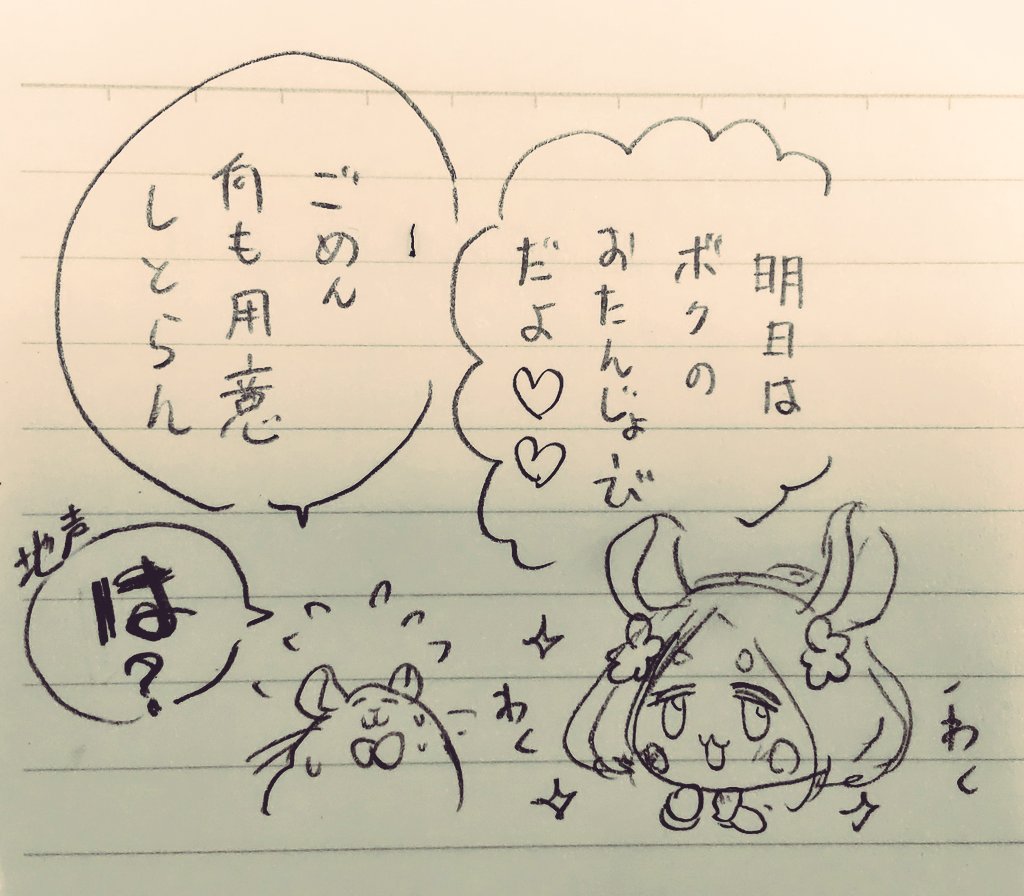 明日は
ボクの
おたんじょび
だよ♡♡
ごめん
何も用意
しとらん
地声
は?
わく
わく